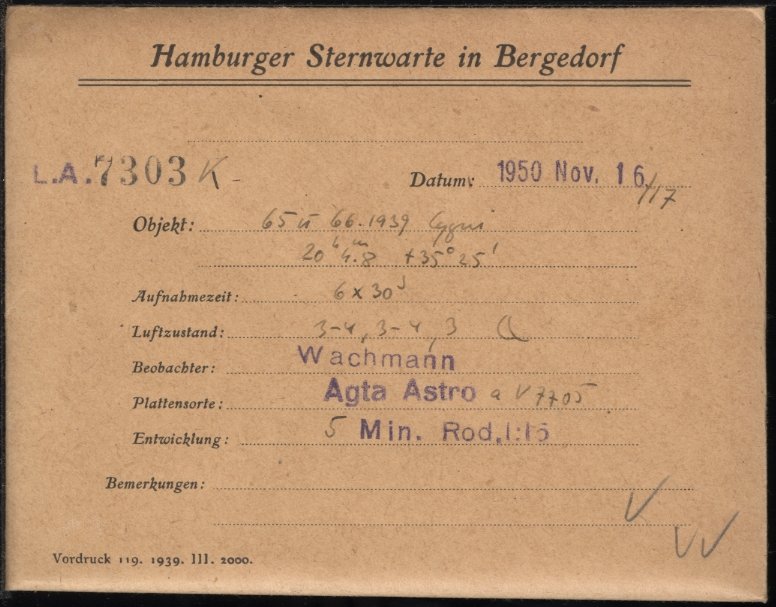 Hamburger Sternwarte in Bergedorf
L.A. 7303 K Datum: 1950 Nov. 16/17
Objekt: 65 u 66.1939 Cygni
20h 4m.8 +35° 25'
Aufnahmezeit: 6 x 30s
Luftzustand: 3-4, 3-4, 3
Beobachter: Wachmann
Plattensorte: Agfa Astro a V 7705
Entwicklung: 5 Min. Rod. 1:15
Bemerkungen:
Vordruck 119. 1939. III. 2000.